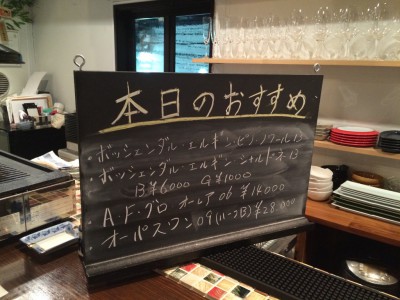 本日のおすすめ
・ボッシェンダル・エルギン・ピノ・ノワール13
・ボッシェンダル・エルギン シャルドネ 13
B¥6000 G¥1000
・A.F.グロ オー レア 06 ¥14000
・オーパスワン 09 (11-2日) ¥28.000